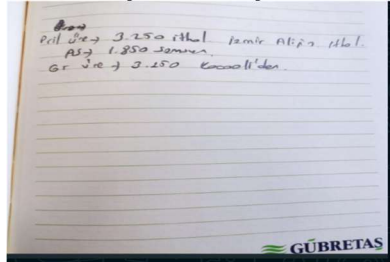 Pril üre → 3.250 ithal İzmir Aliağa ithal.
AS → 1.850 Samsun.
Gr üre → 3.250 Kocaeli'den.
GÜBRETAŞ